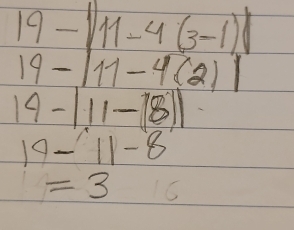 19 - |11 - 4(3-1)|
19 - |11 - 4(2)|
19 - |11 - (8)|
19 - 11 - 8
= 3 16